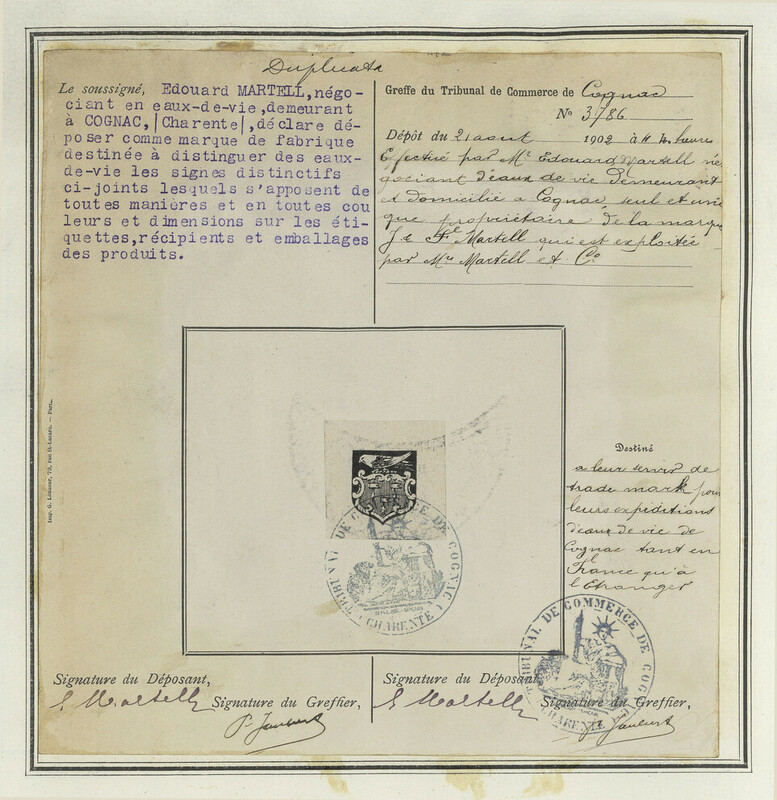 Duplicata
Le soussigné, Edouard MARTELL, négo-
ciant en eaux-de-vie, demeurant
à COGNAC, |Charente|, déclare dé-
poser comme marque de fabrique
destinée à distinguer des eaux-
de-vie les signes distinctifs
ci-joints lesquels s'apposent de
toutes manières et en toutes cou
leurs et dimensions sur les éti-
quettes, récipients et emballages
des produits.
Greffe du Tribunal de Commerce de Cognac
N° 3786
Dépôt du 21 aout 1902 à 4 heures
Effectué par Mr Edouard Martell né
gociant d'eaux de vie demeurant
et domicilié à Cognac, seul et uni
que propriétaire de la marque
J & F Martell qui est exploitée
par Mrs Martell et Co
Imp. G. Lemoine, 73, rue St-Lazare. — Paris.
Destiné
a leur servir de
trade mark pour
leurs expéditions
d'eaux de vie de
Cognac tant en
France qu'à
l'Etranger
TRIBUNAL DE COMMERCE DE COGNAC
(CHARENTE)
TRIBUNAL DE COMMERCE DE COGNAC
CHARENTE
Signature du Déposant,
E Martell
Signature du Greffier,
P. Jaubert
Signature du Déposant,
E Martell
Signature du Greffier,
P. Jaubert